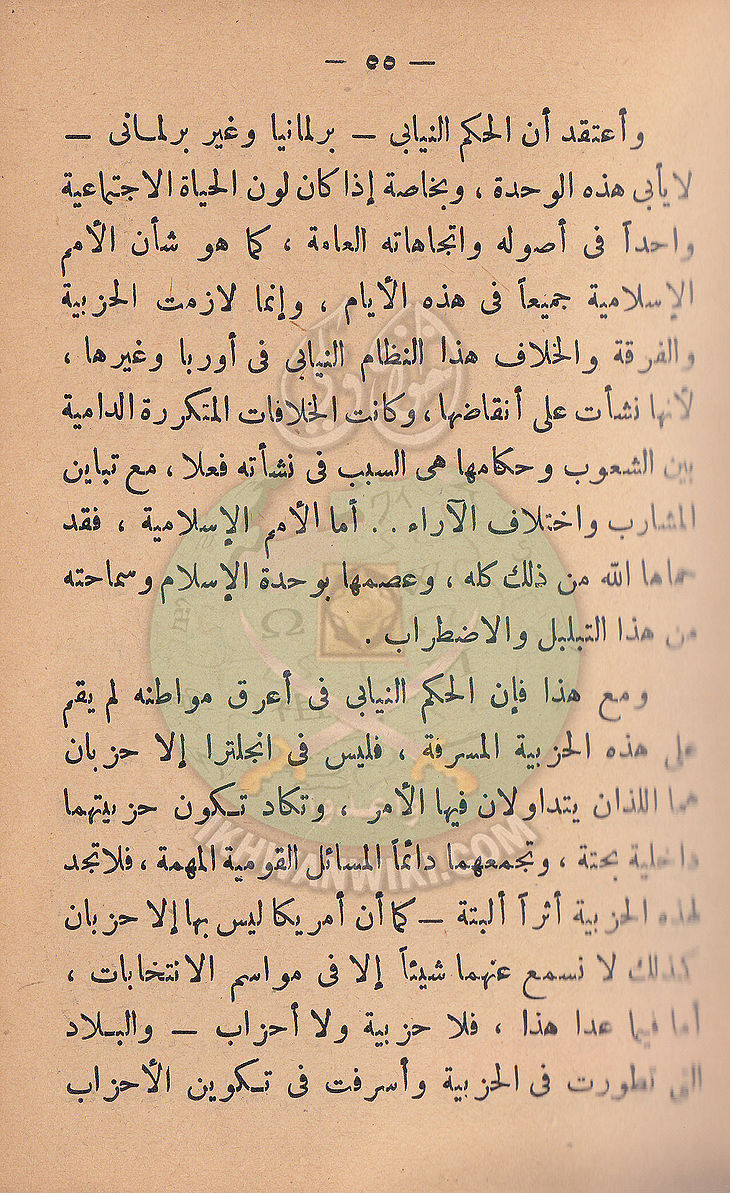 — ٥٥ —
وأعتقد أن الحكم النيابى — برلمانيا وغير برلمانى —
لا يأبى هذه الوحدة ، وبخاصة إذا كان لون الحياة الاجتماعية
واحداً فى أصوله واتجاهاته العامة ، كما هو شأن الأمم
الإسلامية جميعاً فى هذه الأيام ، وإنما لازمت الحزبية
والفرقة والخلاف هذا النظام النيابى فى أوربا وغيرها ،
لأنها نشأت على أنقاضها ، وكانت الخلافات المتكررة الدامية
بين الشعوب وحكامها هى السبب فى نشأته فعلا ، مع تباين
المشارب واختلاف الآراء . . أما الأمم الإسلامية ، فقد
حماها الله من ذلك كله ، وعصمها بوحدة الإسلام وسماحته
من هذا التبلبل والاضطراب .
ومع هذا فإن الحكم النيابى فى أعرق مواطنه لم يقم
على هذه الحزبية المسرفة ، فليس فى انجلترا إلا حزبان
هما اللذان يتداولان فيها الأمر ، وتكاد تكون حزبيتهما
داخلية بحتة ، وتجمعهما دائماً المسائل القومية المهمة ، فلا تجد
لهذه الحزبية أثراً ألبتة — كما أن أمريكا ليس بها إلا حزبان
كذلك لا نسمع عنهما شيئاً إلا فى مواسم الانتخابات ،
أما فيما عدا هذا ، فلا حزبية ولا أحزاب — والبلاد
التى تطورت فى الحزبية وأسرفت فى تكوين الأحزاب
إخوان ويكى
IKHWANWIKI.COM